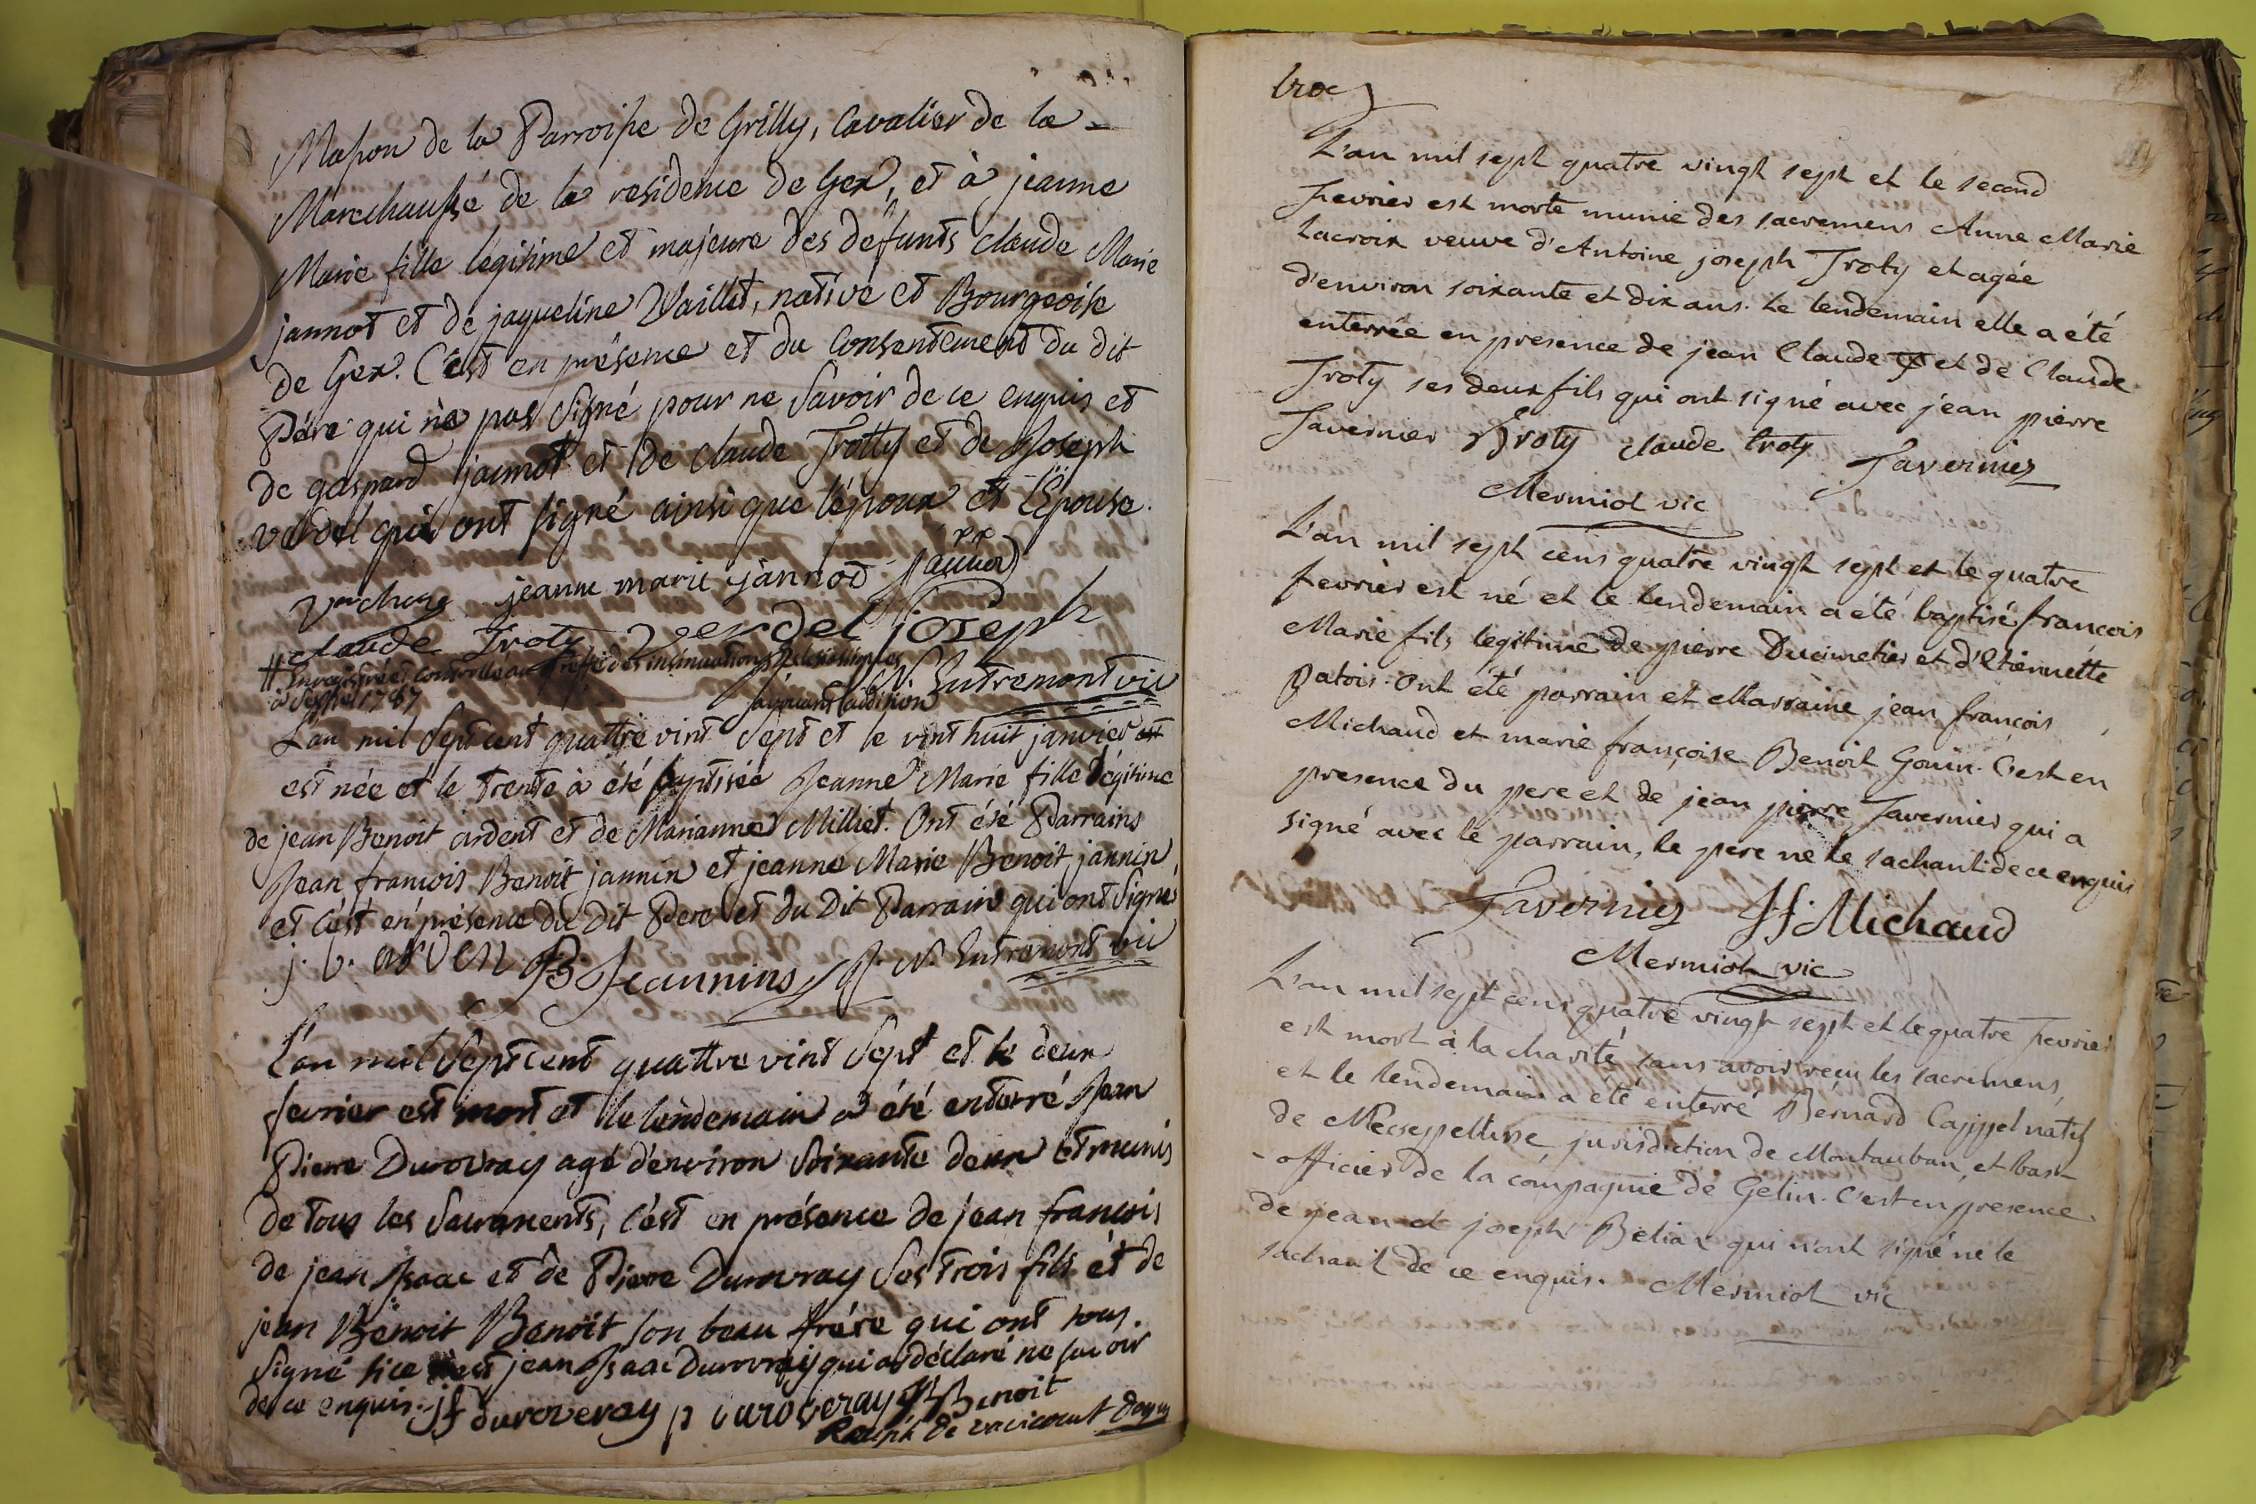 Masson de la Parroisse de Grilly, Cavalier de la
Marechaussé de la residence de Gex, et à jeanne
Marie fille légitime et majeure des défunts claude Marie
jannot et de jaqueline Vaillet, native et Bourgeoise
de Gex. C'est en présence et du Consentement du dit
Pére qui n'a pas signé pour ne Savoir de ce enquis et
de gaspard jannot et de Claude Trotty et de Joseph
verdel qui ont signé ainsi que l'époux et l'Epouse.
jeanne marie jannot
claude Troty Verdel joseph
# Enregistré et Controllé au Greffe des insinuations Ecclesiastiques
1787 N. Entremont vic
L'an mil Sept cent quattre vint Sept et le vint huit janvier est
est née et le trente à été baptisée Jeanne Marie fille légitime
de jean Benoit ardent et de Marianne Milliet. Ont été Parrains
Jean francois Benoit jannin et jeanne Marie Benoit jannin
et c'est en présence du Dit Pere et du Dit Parrain qui ont Signés
j. b. arden B Jeannins N. Entremont vic
L'an mil Sept cent quattre vint Sept et le deux
fevrier est mort et le lendemain a été enterré Jean
Pierre Durovray agé d'environ Soixante deux et munis
de tous les Sacrements, c'est en présence de jean francois
de jean Isaac et de Pierre Durovray Ses trois fils et de
jean Benoit Benoit son beau frére qui ont tous
Signé si ce n'est jean Isaac Durovray qui a déclaré ne savoir
de ce enquis. jf duroveray p duroveray JB Benoit
troc
L'an mil sept quatre vingt sept et le second
fevrier est morte munie des sacremens Anne Marie
Lacroix veuve d'Antoine joseph Troty et agée
d'environ soixante et dix ans. Le lendemain elle a été
enterrée en presence de jean Claude et de Claude
Troty ses deux fils qui ont signé avec jean pierre
Tavernier Troty claude troty Tavernier
Mermiot vic
L'an mil sept cens quatre vingt sept et le quatre
fevrier est né et le lendemain a été baptisé françois
Marie fils legitime de pierre Ducimetier et d'Etiennette
Patois. Ont été parrain et Marraine jean françois
Michaud et marie françoise Benoit Gouin. C'est en
presence du pere et de jean pierre Tavernier qui a
signé avec le parrain, le pere ne le sachant de ce enquis
Tavernier Jf. Michaud
Mermiot vic
L'an mil sept cens quatre vingt sept et le quatre fevrier
est mort à la charité sans avoir reçu les sacremens,
et le lendemain a été enterré Bernard Cappel natif
de jurisdiction de Montauban, et bas-
-officier de la compagnie de Gelin. C'est en presence
de jean et joseph Beliar qui n'ont signé ne le
sachant de ce enquis. Mermiot vic